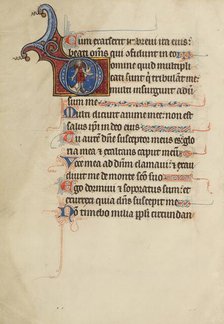 Cum exarserit i brevi ira eius:
beati oms qui ofidunt in eo
Domine quid multipli
cati sunt q tribulant me:
multi insurgunt ad
sum me
Multi dicunt anime mee: non est
salus ipi in deo eius
Tu autem dne susceptor meus es: glo
ria mea et exaltans caput meum
Voce mea ad dnm clamavi: et exau
divit me de monte sco suo
Ego dormivi et soporatus sum: et
exurrexi quia dns suscepit me
Non timebo milia ppli circundan